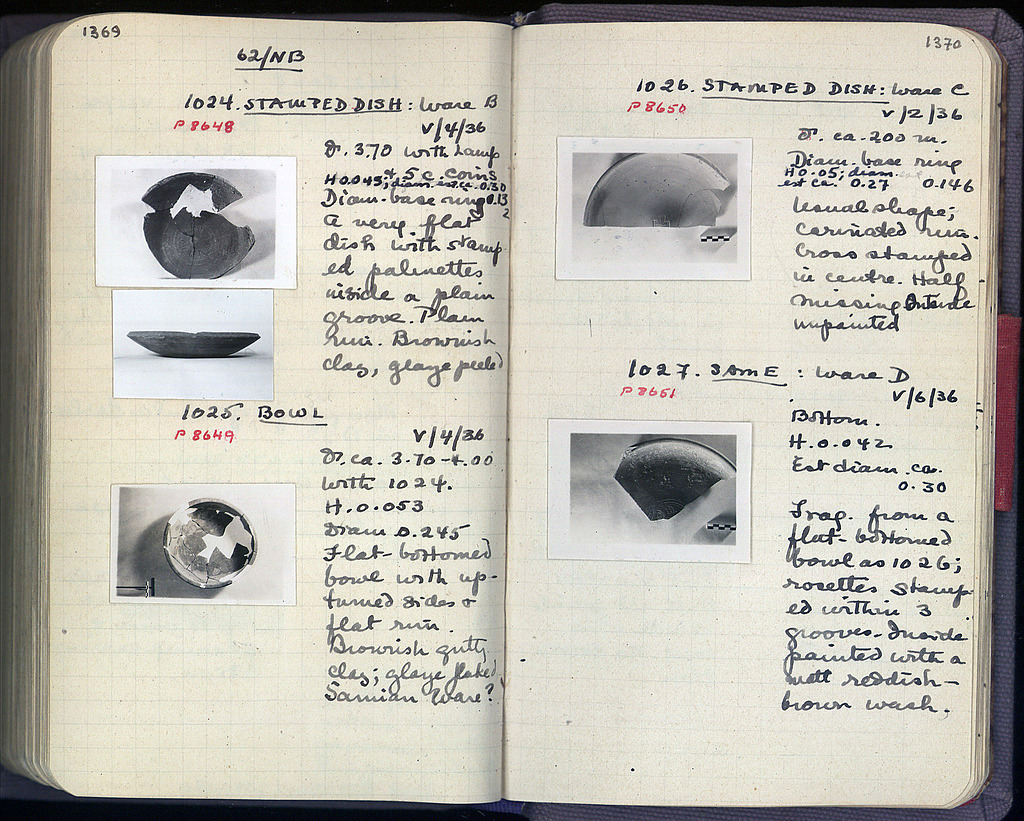 1369
62/NB
1024. STAMPED DISH: Ware B
P 8648
V/4/36
D. 3.70 with Lamp
+ 5 c. coins
H 0.045; diam. est. ca. 0.30
Diam. base ring 0.132
A very flat
dish with stamp-
ed palmettes
inside a plain
groove. Plain
rim. Brownish
clay, glaze peeled
1025. BOWL
P 8649
V/4/36
D. ca. 3.70-4.00
with 1024.
H. 0.053
Diam 0.245
Flat-bottomed
bowl with up-
turned sides &
flat rim.
Brownish gritty
clay; glaze flaked
Samian Ware?
1370
1026. STAMPED DISH: Ware C
P 8650
V/2/36
D. ca. 200 m.
Diam. base ring
H 0.05; diam.
est ca. 0.27 0.146
Usual shape;
carinated rim.
Cross stamped
in centre. Half
missing Outside
unpainted
1027. SAME : Ware D
P 8651
V/6/36
Bottom.
H. 0.042
Est diam. ca.
0.30
Frag. from a
flat-bottomed
bowl as 1026;
rosettes stamp-
ed within 3
grooves. Inside
painted with a
matt reddish-
brown wash.